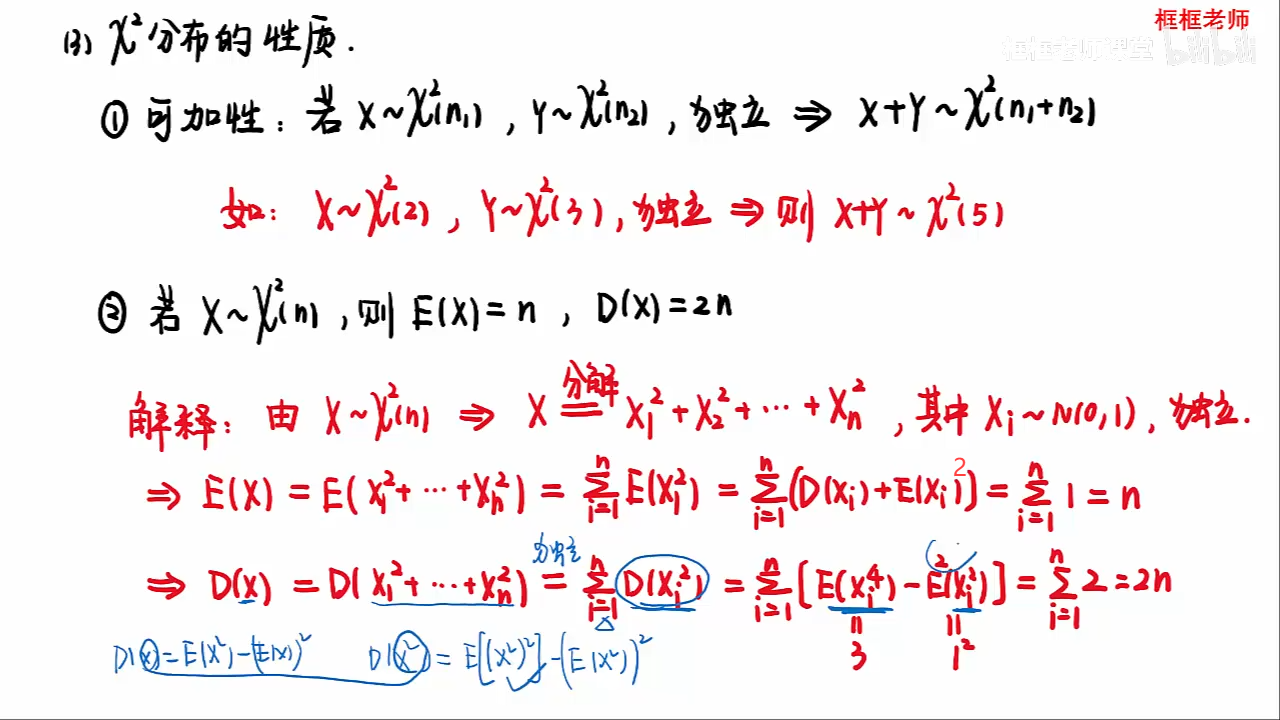 框框老师
框框老师课堂 bilibili
(3) χ²分布的性质.
① 可加性: 若 X~χ²(n₁), Y~χ²(n₂), 独立 ⇒ X+Y~χ²(n₁+n₂)
如: X~χ²(2), Y~χ²(3), 独立 ⇒ 则 X+Y~χ²(5)
② 若 X~χ²(n), 则 E(X)=n, D(X)=2n
解释: 由 X~χ²(n) ⇒ X ≝分解 X₁²+X₂²+…+Xₙ², 其中 Xᵢ~N(0,1), 独立.
⇒ E(X) = E(X₁²+…+Xₙ²) = ∑ᵢ₌₁ⁿ E(Xᵢ²) = ∑ᵢ₌₁ⁿ (D(Xᵢ)+E(Xᵢ)²] = ∑ᵢ₌₁ⁿ 1 = n
独立
⇒ D(X) = D(X₁²+…+Xₙ²) = ∑ᵢ₌₁ⁿ D(Xᵢ²) = ∑ᵢ₌₁ⁿ [E(Xᵢ⁴)-E²(Xᵢ²)] = ∑ᵢ₌₁ⁿ 2 = 2n
3 1²
D(X)=E(X²)-(E(X))² D(X²)=E[(X²)²]-(E(X²))²